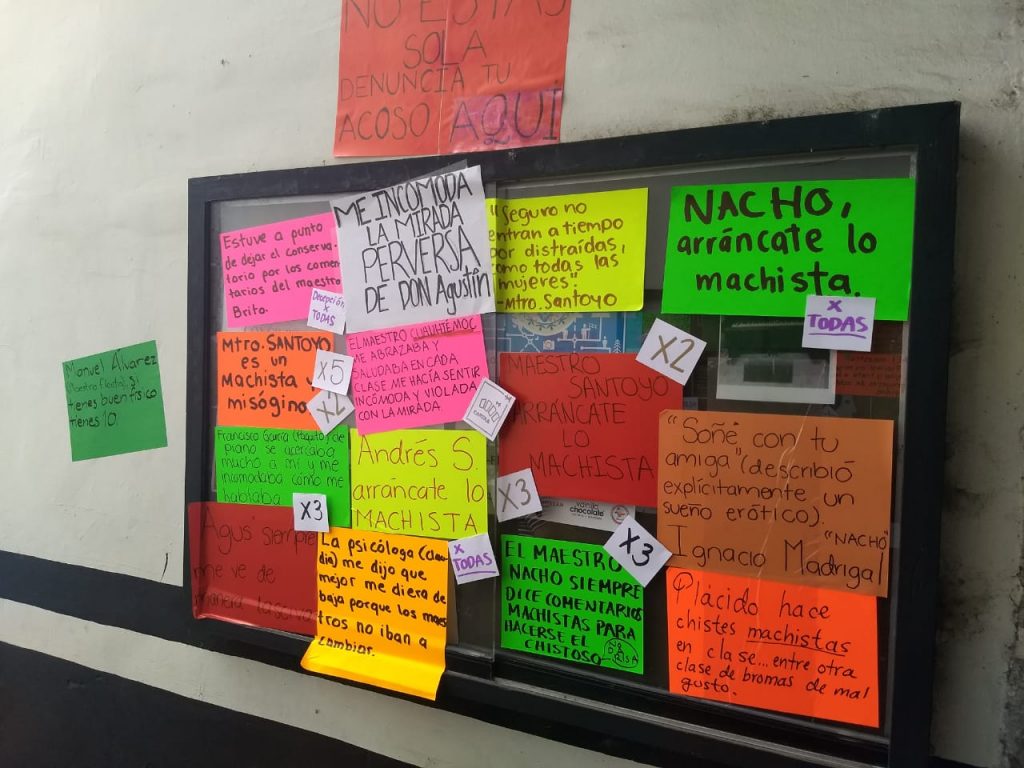 NO ESTÁS
SOLA
DENUNCIA TU
ACOSO AQUÍ
Estuve a punto
de dejar el conserva-
torio por los comen-
tarios del maestro
Brito.
Decepción
x
TODAS
ME INCOMODA
LA MIRADA
PERVERSA
DE DON Agustín
"Seguro no
entran a tiempo
por distraídas,
como todas las
mujeres".
-Mtro. Santoyo
NACHO,
arráncate lo
machista.
x
TODAS
Manuel Álvarez
Maestro
si
tienes buen físico
tienes 10
Mtro. SANTOYO
es un
Machista y
misógino
x5
x2
EL MAESTRO CUAUHTEMOC
ME ABRAZABA Y
SALUDABA EN CADA
CLASE ME HACÍA SENTIR
INCÓMODA Y VIOLADA
CON LA MIRADA
MAESTRO
SANTOYO
ARRÁNCATE
LO
MACHISTA
x2
Francisco García (Paquito) de
piano se acercaba
mucho a mí y me
incomodaba como me
hablaba
x3
Andrés S.
arráncate lo
MACHISTA
x3
"Soñé con tu
amiga" (describió
explícitamente un
sueño erótico).
"NACHO"
Ignacio Madrigal
Agus siempre
me ve de
manera
La psicóloga
me dijo que
mejor me diera de
baja porque los maes
tros no iban a
cambiar.
x
TODAS
EL MAESTRO
NACHO SIEMPRE
DICE COMENTARIOS
MACHISTAS PARA
HACERSE EL
CHISTOSO
x3
Plácido hace
chistes machistas
en clase... entre otra
clase de bromas de mal
gusto.
chocolate